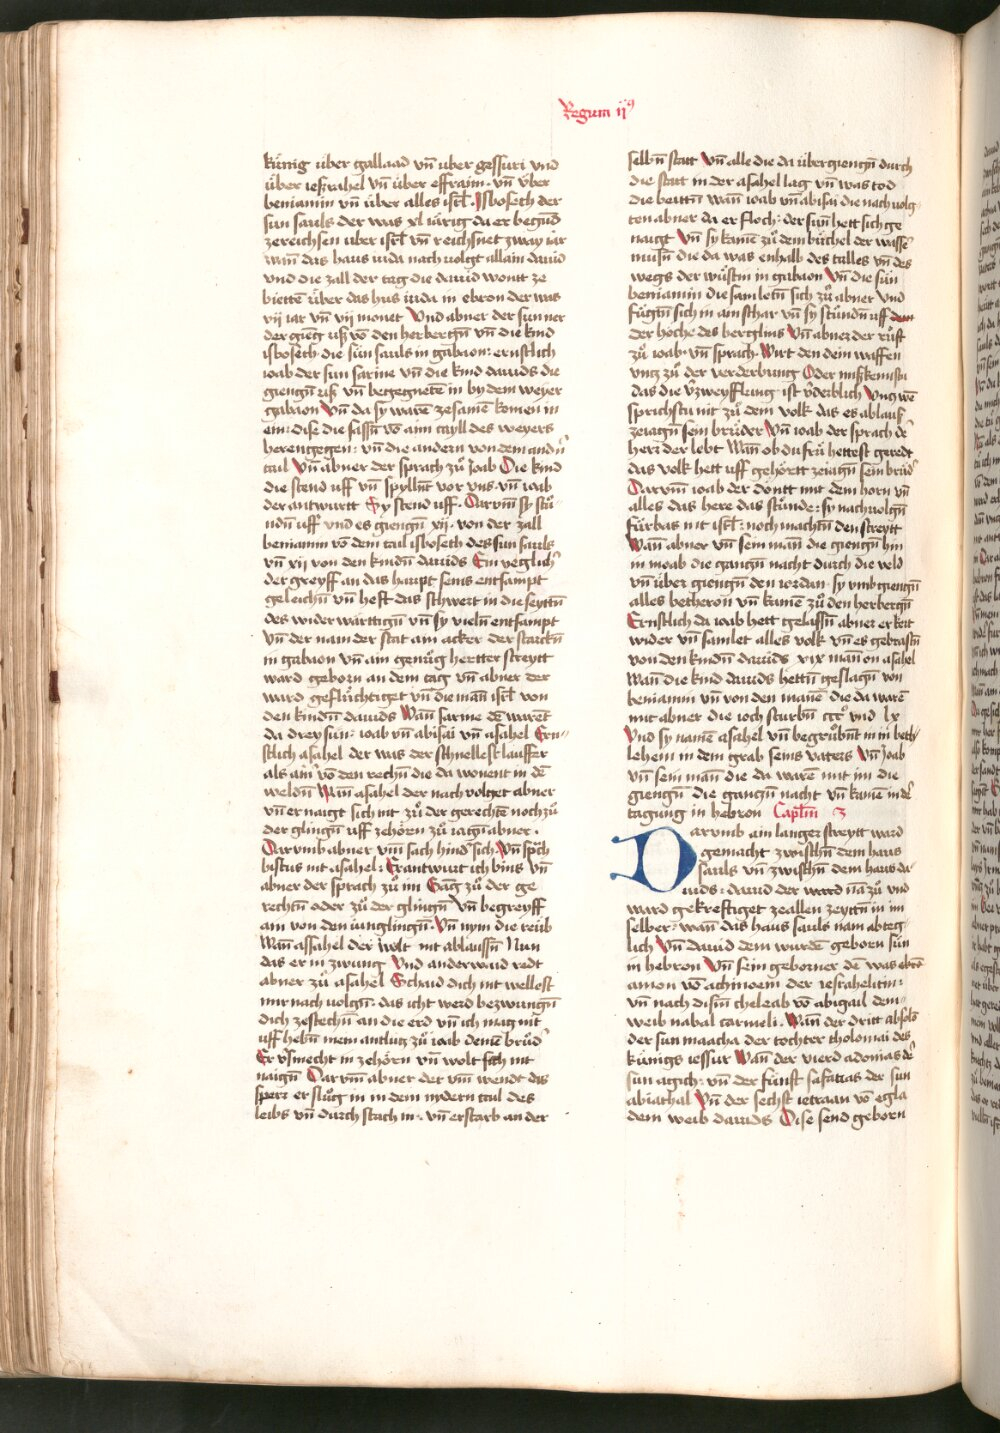 Regum ij⁹
künig über gallaad vn̄ uber gessuri vnd
über iesrahel vn̄ über effraim · vn̄ vber
beniamin vn̄ über alles isrl̄ · Isboseth der
sun sauls der was xl iärig da er begūd
zereichsen uber isrl̄ vn̄ reichsnet zway iar
wan̄ das haus iuda nach volgt allain dauid
vnd die zall der tag die dauid wontt ze
biettē über das hus iuda in ebron der was
vij iar vn̄ vij monet Vnd abner der sun ner
der gieng uß vō den herbergn̄ vn̄ die kind
isboseth die sün sauls in gabaon: ernstlich
ioab der sun sarine vn̄ die kind dauids die
giengn̄ uß vn̄ begegnetē in by dem weyer
gabaon Vn̄ da sy warē zesamē komen in
ein: dise die sassn̄ vō aim tayll des weyers
herentgegen: vn̄ die andern von dem andn̄
tail Vn̄ abner der sprach zů Joab Die kind
die stend uff vn̄ spyllnt vor vns · vn̄ ioab
der antwurtt Sy stend uff · Darvm̄ sy stů-
ndn̄ uff vnd es giengn̄ xij · von der zall
beniamin vō dem tail isboseth des sun sauls
vn̄ xii von den kindn̄ dauids Ein yeglich͛
der greyff an das haupt seins entsampt
geleichn̄ vn̄ heft das schwert in die seyttn̄
des wider wärttign̄ vn̄ sy vieln̄ entsampt
Vn̄ der nam der stat am acker der starckn̄
in gabaon vn̄ ain genůg hertter streytt
ward geborn an dem tag vn̄ abner der
ward geflüchtiget vn̄ die man isrl̄ von
den kindn̄ dauids Wan̄ sarine dē warent
da drey sun: ioab vn̄ abisai vn̄ asahel Ern-
stlich asahel der was der schnellest lauffer
als aim͛ vō den rechn̄ die da wonent in dē
weldn̄ Wan̄ asahel der nach volget abner
vn̄ er naigt sich nit zů der gerechtē noch zů
der glingn̄ uff zehören zů iagn̄ abner ·
Darvmb abner vm̄ sach hind͛ sich · Vn̄ sp̄ch
bistus nit asahel: Er antwurt ich bins vn̄
abner der sprach zů im Gāg zů der ge
rechtn̄ oder zů der glingn̄ Vn̄ begreyff
am von den iunglingn̄ · Vn̄ nym die reüb
Wan̄ assahel der wolt nit ablaussn̄ Nun
das er in zwung Vnd anderwaid redt
abner zů asahel Schaid dich nit wellest
mir nach volgn̄: das icht werd bezwungn̄
dich zestechn̄ an die erd vn̄ ich mag nit
uff hebn̄ mein antlutz zů ioab deinē brůd͛
Er v͛smecht in zehörn vn̄ wolt sich nit
naign̄ Darvm̄ abner der vm̄ wendt das
sperz er slůg in in dem nydern tail des
leibs vn̄ durch stach in · vn̄ er starb an der
selbn̄ statt Vn̄ alle die da übergiengn̄ durch
die statt in der asahel lag vn̄ was tod
die beittn̄ Wan̄ ioab vn̄ abisai die nach volg-
ten abner da er floch: der sun̄ hett sich ge
naigt Vn̄ sy kamē zů dem büchel der wasse͛
musn̄ die da was enhalb des talles vn̄ des
wegs der wüstin in gabaon Vn̄ die sün
beniamin die samletn̄ sich zů abner vnd
fügtn̄ sich in ain schar vn̄ sy stůndn̄ uff dem
der höche des berglins Vn̄ abner der rüft
zů ioab · vn̄ sprach Wirt den dem waffen
vntz zů der verderbung Oder mißkennstu
das die v͛zweyfflung ist v͛derblich Vntz wē
sprichstu nit zů dem volk das es ablaus
zeiagn̄ sein brüder Vn̄ ioab der sprach d͛
herr der lebt Wan̄ ob du frü hettest geredt
das volk hett uff gehörtt zeiagn̄ sein brüd͛
Darvm̄ ioab der dontt mit dem horn vn̄
alles das here das stůnde: sy nachvolgn̄
fürbas nit isrl̄: noch machtn̄ den streytt
Wan̄ abner vn̄ sein man̄ die giengn̄ hin
in moab die gantzn̄ nacht durch die veld
vn̄ über giengn̄ den iordan · sy vmb giengn̄
alles betheron vn̄ kamē zů den herbergn̄
Ernstlich da ioab hett gelassn̄ abner er kert
wider vn̄ samlet alles volk vn̄ es gebrastn̄
von den kindn̄ dauids xix man̄ on asahel
Wan̄ die kind dauids hettn̄ geslagn̄ von
beniamin vn̄ von den manē die da warē
mit abner die ioch sturbn̄ ccc⁰ vnd lx
Vnd sy namē asahel vn̄ begrůbnt in in beth-
lehem in dem grab seins vaters Vn̄ Joab
vn̄ sein man̄ die da warē mit im die
giengn̄ die gantzn̄ nacht vn̄ kamē in d͛
tagung in hebron Capl̄m 3
Darvmb ain langer streytt ward
gemacht zwischn̄ dem haus
sauls vn̄ zwischn̄ dem haus da-
uids: dauid der ward nā zů vnd
ward gekreftiget zeallen zeyttn̄ in im
selber: wan̄ das haus sauls nam ab teg-
lich Vn̄ dauid dem wurdē geborn sün
in hebron Vn̄ sein geborner dē was
amon vō achinoem der iesrahelitin:
vn̄ nach dism̄ cheleab vō abigail dem-
weib nabal carmeli · Wan̄ der dritt absolō
der sun maacha der tochter tholomai des
künigs iessur Wan̄ der vierd adomas d͛
sun agith: vn̄ der fünft safatias der sun
abiathal Vn̄ der sechst ietraan vō egla
dem weib dauids Dise send geborn